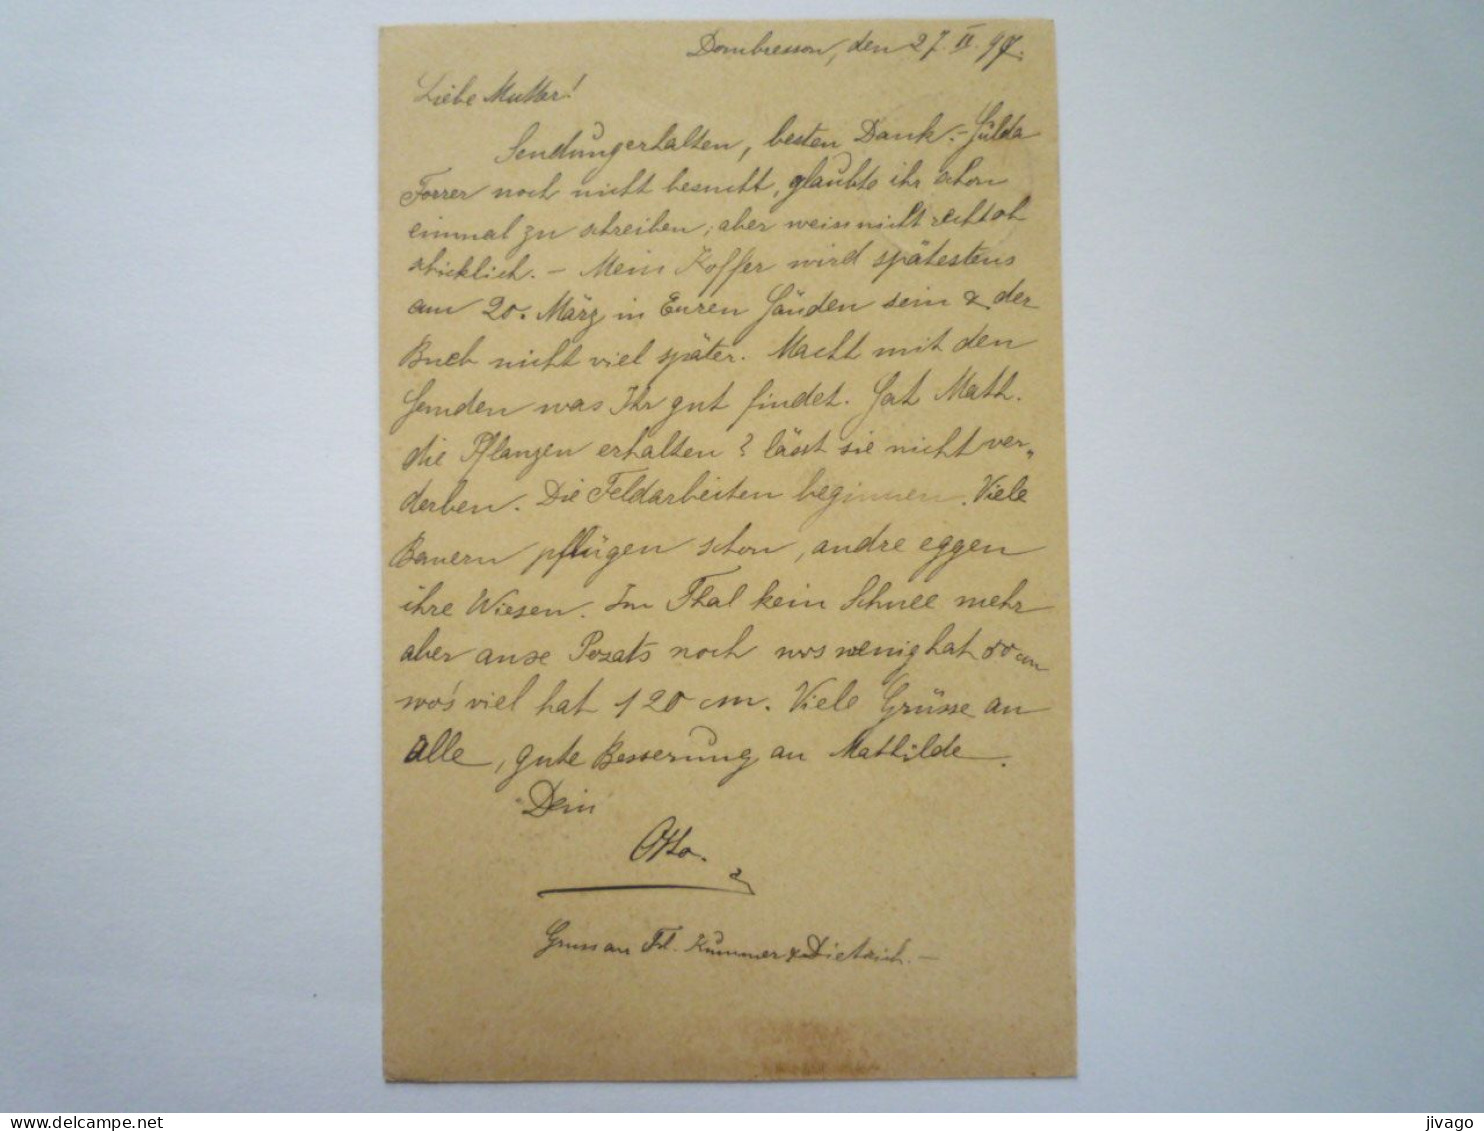 Dombresson, den 27. II. 97.
Liebe Mutter!
Sendung erhalten, besten Dank. – Hulda
Forrer noch nicht besucht, glaubte ihr schon
einmal zu schreiben, aber weiss nicht recht ob
schicklich. – Mein Koffer wird spätestens
am 20. März in Euren Händen sein & der
Bueb nicht viel später. Macht mit den
Hemden was Ihr gut findet. Hat Math.
die Pflanzen erhalten? lässt sie nicht ver-
derben. Die Feldarbeiten beginnen. Viele
Bauern pflügen schon, andre eggen
ihre Wiesen. Im Thal kein Schnee mehr
aber noch wos wenig hat cm
wo's viel hat 120 cm. Viele Grüsse an
alle, gute Besserung an Mathilde.
Dein
Otto.
Gruss an Frl. Kummer & Dietrich. –
jivago